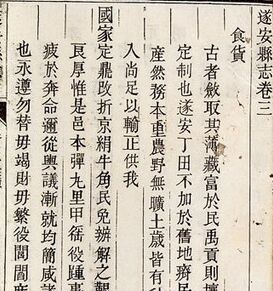 遂安縣志卷三
食貨
古者斂取其薄藏富於民禹貢則壤
定制也遂安丁田不加於舊地瘠民
產然務本重農野無曠土歲皆有
入尚足以輸正供我
國家定鼎改折京絹牛角民免辦解之艱
良厚惟是邑本彈九里甲徭役踵事
疲於奔命邇從輿議漸就均簡咸
也永遵勿替毋竭則毋繁役閭閻